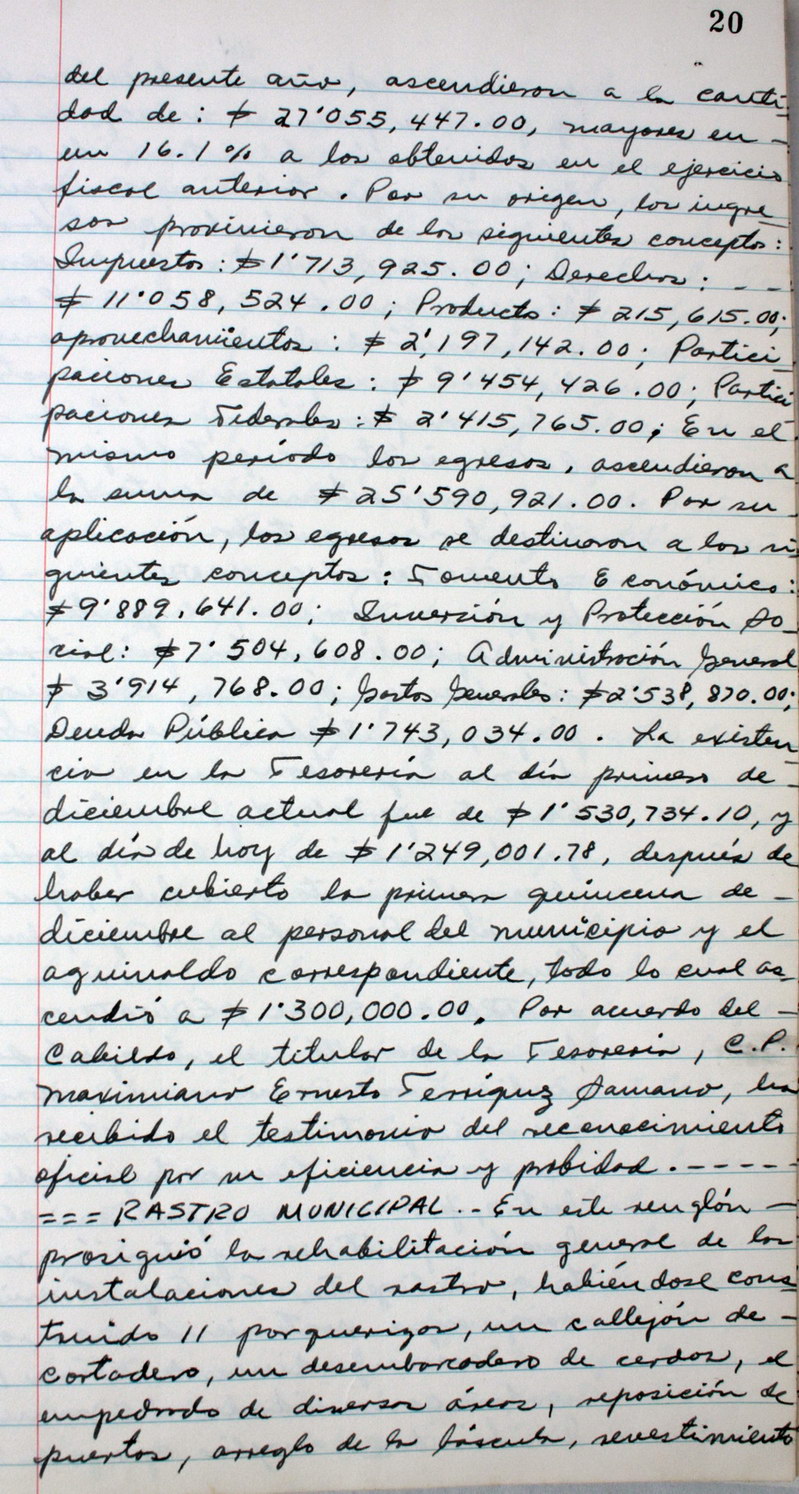 20
del presente año, ascendieron a la canti-
dad de: $ 27'055,447.00, mayores en -
un 16.1% a los obtenidos en el ejercicio
fiscal anterior. Por su origen, los ingre-
sos provinieron de los siguientes conceptos:
Impuestos: $1'713,925.00; Derechos: - -
$ 11'058,524.00; Productos: $ 215,615.00;
aprovechamientos: $ 2',197,142.00; Partici-
paciones Estatales: $ 9'454,426.00; Partici-
paciones Federales: $ 2'415,765.00; En el
mismo período los egresos, ascendieron a
la suma de $25'590,921.00. Por su -
aplicación, los egresos se destinaron a los si-
guientes conceptos: Fomento Económico:
$9'889,641.00; Inversión y Protección So-
cial: $7'504,608.00; Administración General
$ 3'914,768.00; Gastos Generales: $2'538,870.00;
Deuda Pública $1'743,034.00. La existen-
cia en la Tesorería al día primero de -
diciembre actual fue de $1'530,734.10, y
al día de hoy de $1'249,001.78, después de
haber cubierto la primera quincena de -
diciembre al personal del municipio y el
aguinaldo correspondiente, todo lo cual as-
cendió a $1'300,000.00. Por acuerdo del -
Cabildo, el titular de la Tesorería, C.P.
Maximiano Ernesto Terríquez Samano, ha
recibido el testimonio del reconocimiento
oficial por su eficiencia y probidad. - - - - -
=== RASTRO MUNICIPAL.- En este renglón -
prosiguió la rehabilitación general de las
instalaciones del rastro, habiéndose cons-
truido 11 porquerizas, un callejón de -
cortadero, un desembarcadero de cerdos, el
empedrado de diversas áreas, reposición de
puertas, arreglo de la báscula, revestimiento